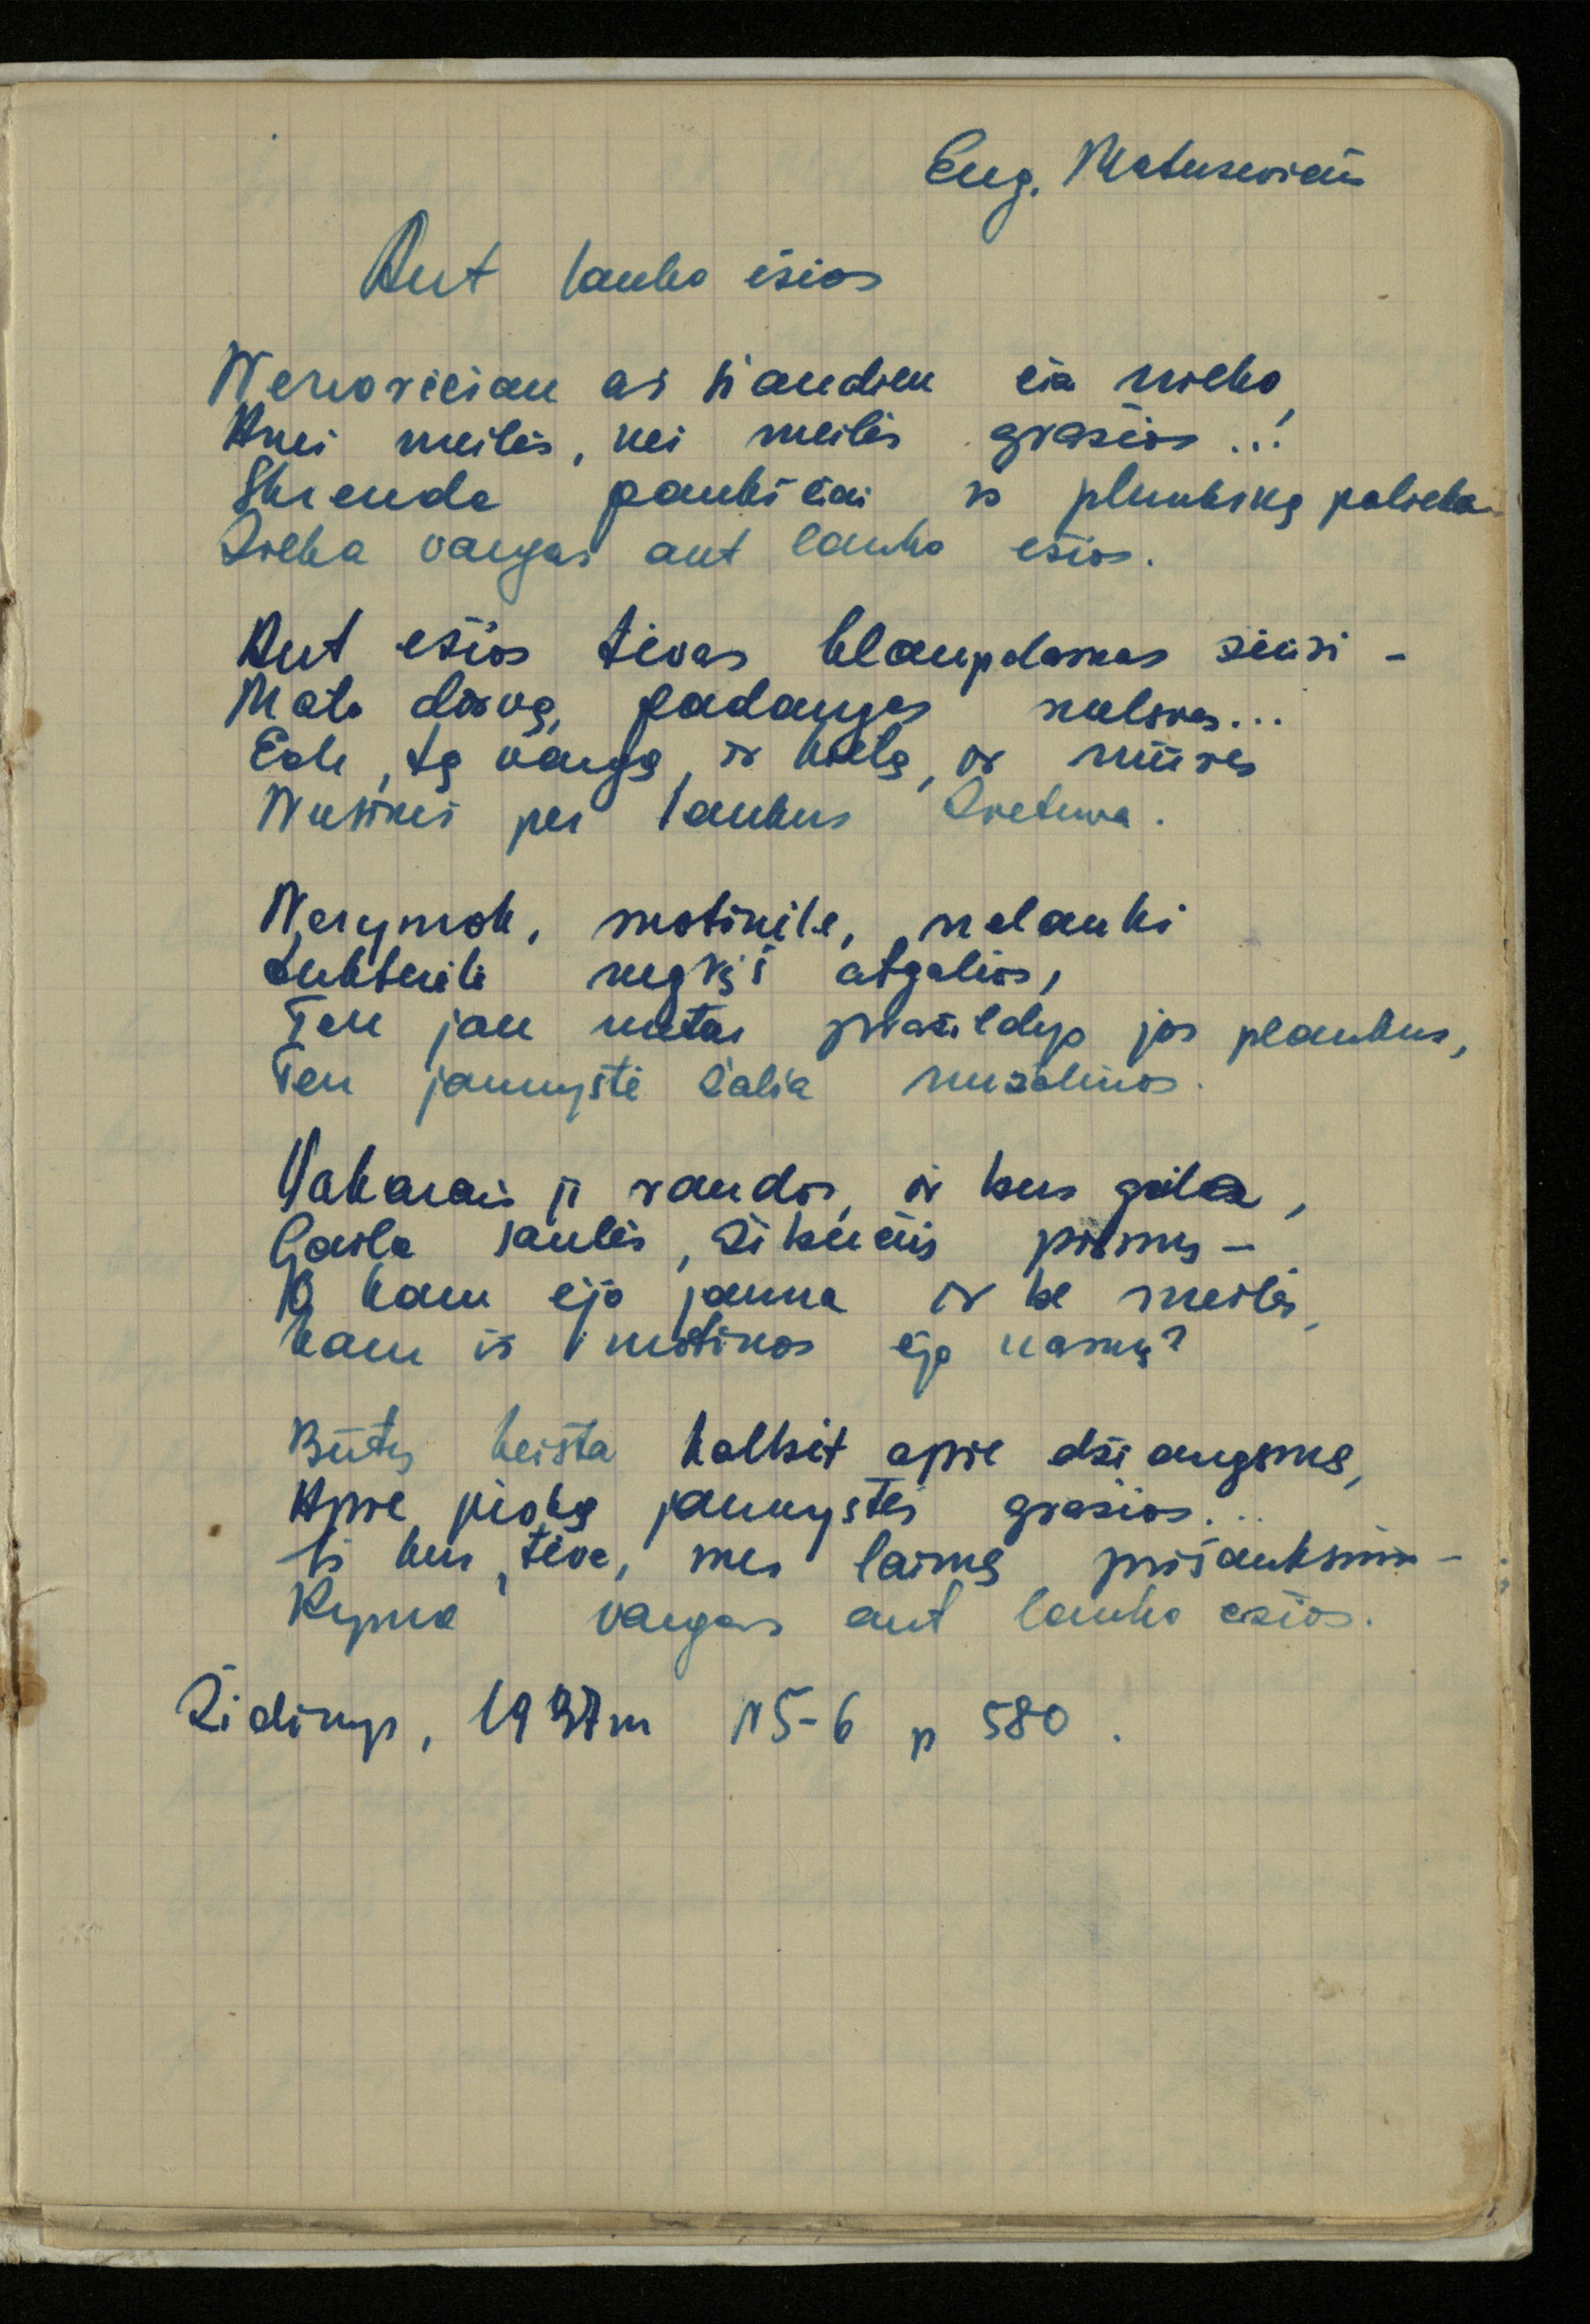 Eug. Matusevičius
Ant lauko ežios
Nenorėčiau aš šiandien čia nieko,
Anei meilės, nei meilės gražios...!
Skrenda paukščiai ir plunksną palieka
Lieka vargas ant lauko ežios.
Ant ežios tėvas klaupdamas žiūri –
Mato dirvą, padanges
Eik, tą vargą, ir kietą, ir niūrią
Nusineš per laukus Lietuva.
Nerymok, motinėle, nelauki
dukterėlė negrįš atgalios,
Ten jau metai pražildyo jos plaukus,
Ten jaunystė žalia nužaliuos.
Vakarais ji raudos, ir bus gaila,
Gaila saulės, žibučių pirmų –
O kam ėjo jauna ir be meilės,
kam iš motinos ėjo namų?
Būtų keista kalbėt apie džiaugsmą,
Apie juoką jaunystės gražios...
Iš kur, tėve, mes laimę prišauksim –
Rymo vargas ant lauko ežios.
Židinys, 1937m N5-6 p 580.